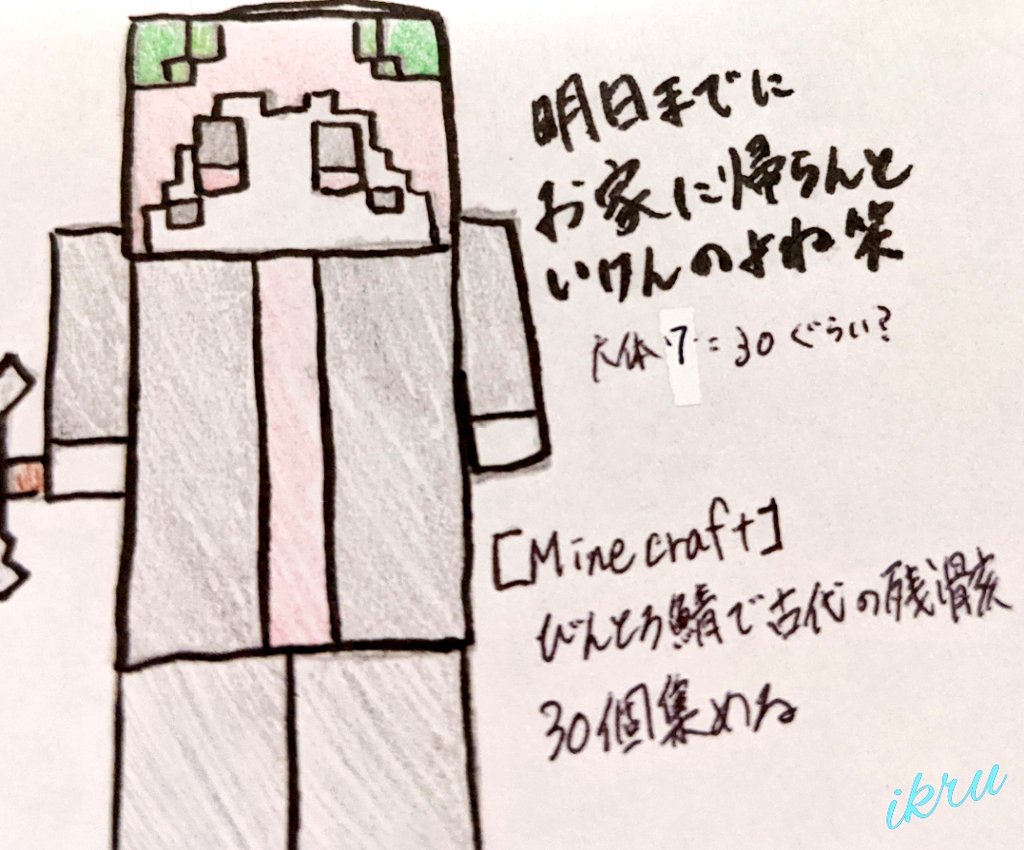 明日までに
お家に帰らんと
いけんのよね笑
大体7:30ぐらい?
[Minecraft]
びんとろ鯖で古代の残骸
30個集める
ikru